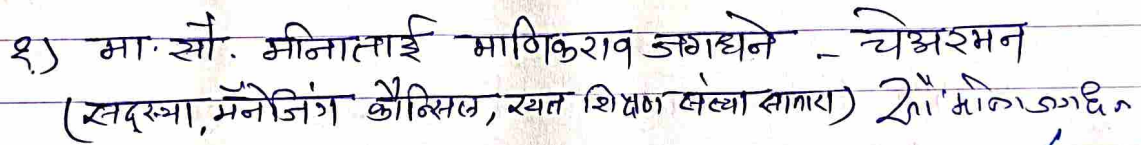 १) मा. सौ. मीनाताई माणिकराव जगधने - चेअरमन
(सदस्या, मॅनेजिंग कौन्सिल, रयत शिक्षण संस्था सातारा) सौ मीना जगधने